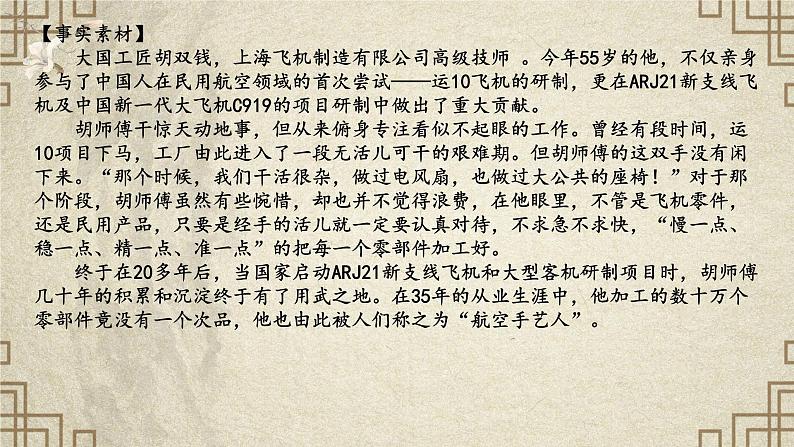 【事实素材】
大国工匠胡双钱，上海飞机制造有限公司高级技师 。今年55岁的他，不仅亲身
参与了中国人在民用航空领域的首次尝试——运10飞机的研制，更在ARJ21新支线飞
机及中国新一代大飞机C919的项目研制中做出了重大贡献。
胡师傅干惊天动地事，但从来俯身专注看似不起眼的工作。曾经有段时间，运
10项目下马，工厂由此进入了一段无活儿可干的艰难期。但胡师傅的这双手没有闲
下来。“那个时候，我们干活很杂，做过电风扇，也做过大公共的座椅！”对于那
个阶段，胡师傅虽然有些惋惜，却也并不觉得浪费，在他眼里，不管是飞机零件，
还是民用产品，只要是经手的活儿就一定要认真对待，不求急不求快，“慢一点、
稳一点、精一点、准一点”的把每一个零部件加工好。
终于在20多年后，当国家启动ARJ21新支线飞机和大型客机研制项目时，胡师傅
几十年的积累和沉淀终于有了用武之地。在35年的从业生涯中，他加工的数十万个
零部件竟没有一个次品，他也由此被人们称之为“航空手艺人”。